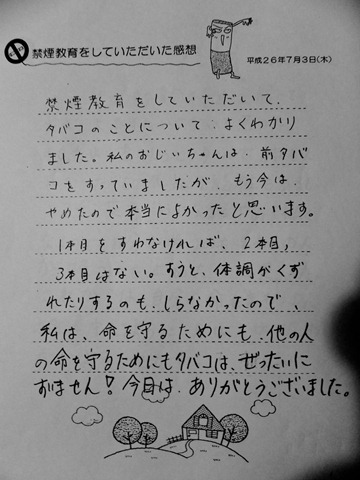 禁煙教育をしていただいた感想
平成26年7月3日(木)
禁煙教育をしていただいて、
タバコのことについて、よくわかり
ました。私のおじいちゃんは、前タバ
コをすっていましたが、もう今は、
やめたので本当によかったと思います。
1本目をすわなければ、2本目,
3本目はない。すうと、体調がくず
れたりするのも、しらなかったので、
私は、命を守るためにも、他の人
の命を守るためにもタバコは、ぜったいに
すいません!今日は、ありがとうございました。